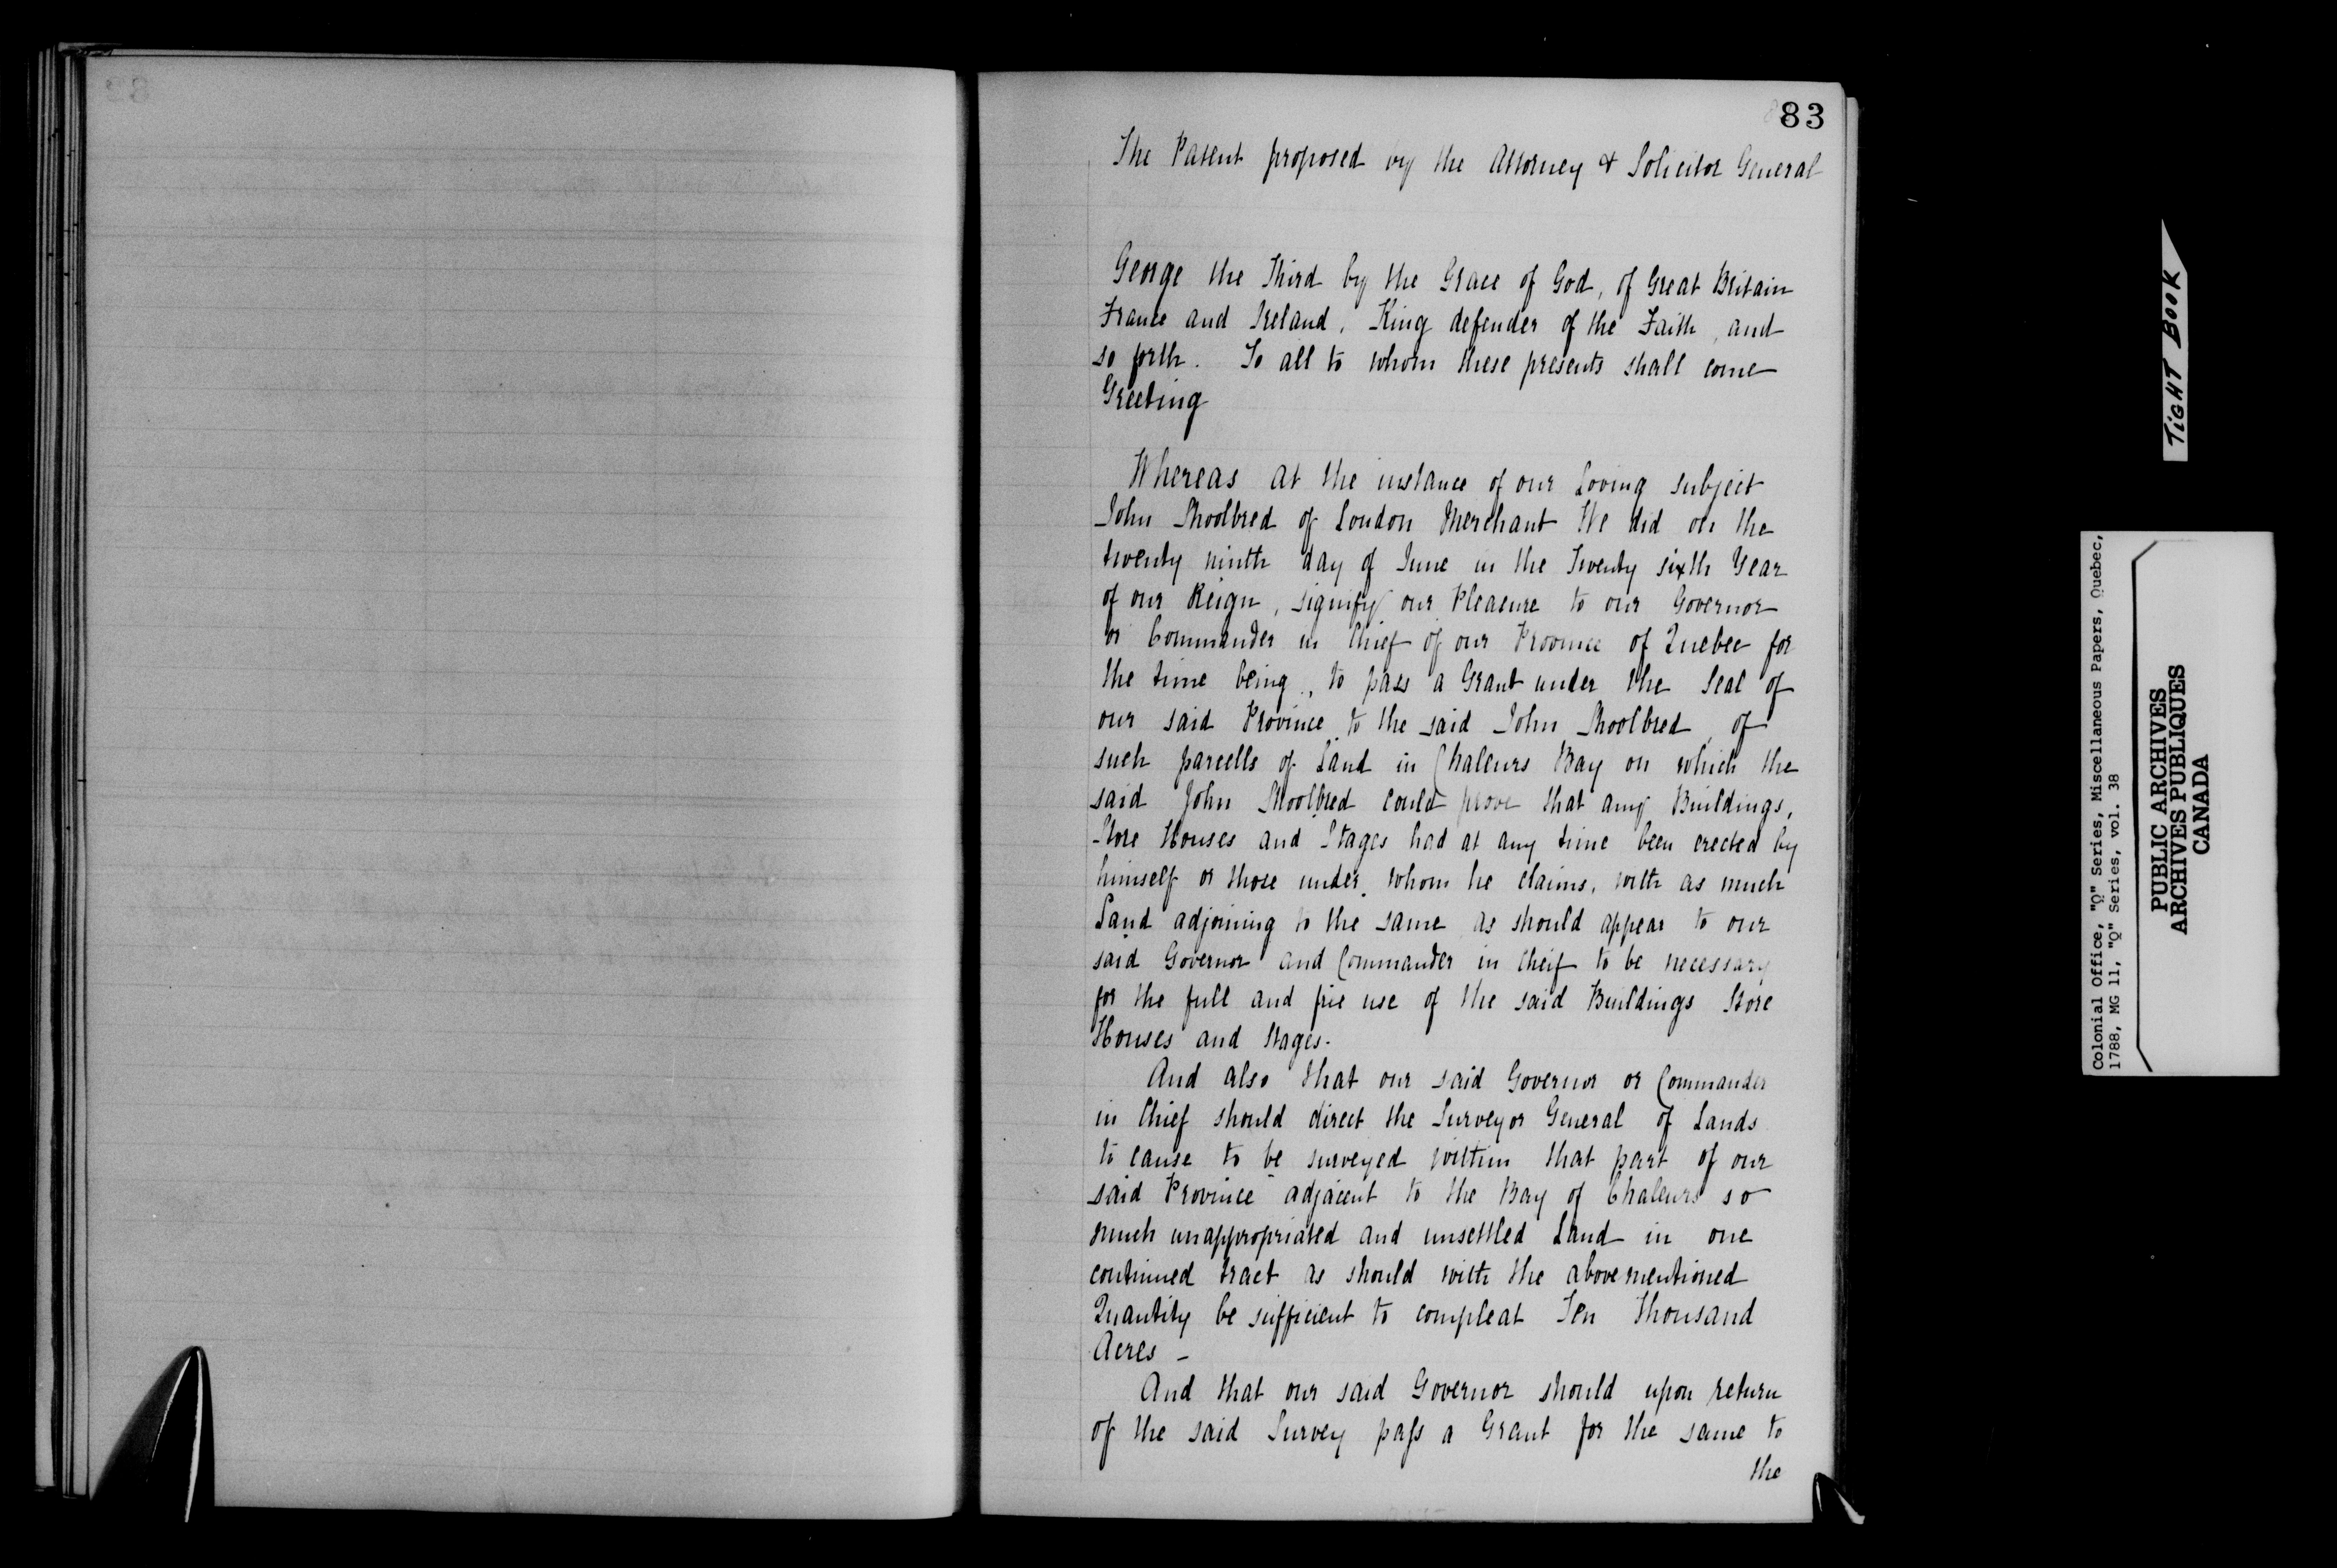 83
The Patent proposed by the Attorney & Solicitor General
George the Third by the Grace of God, of Great Britain
France and Ireland, King defender of the Faith, and
so forth. To all to whom these presents shall come
Greeting
Whereas at the instance of our Loving subject
John Shoolbred of London Merchant We did on the
twenty ninth day of June in the Twenty sixth Year
of our Reign, signify our Pleasure to our Governor
or Commander in Chief of our Province of Quebec for
the time being, to pass a Grant under the Seal of
our said Province to the said John Shoolbred, of
such parcells of Land in Chaleurs Bay on which the
said John Shoolbred could prove that any Buildings,
Store Houses and Stages had at any time been erected by
himself or those under whom he claims, with as much
Land adjoining to the same as should appear to our
said Governor and Commander in Cheif to be necessary
for the full and free use of the said Buildings Store
Houses and Stages.
And also that our said Governor or Commander
in Chief should direct the Surveyor General of Lands
to cause to be surveyed within that part of our
said Province adjacent to the Bay of Chaleurs so
much unappropriated and unsettled Land in one
continued tract as should with the abovementioned
Quantity be sufficient to compleat Ten Thousand
Acres –
And that our said Governor should upon return
of the said Survey pass a Grant for the same to
the
TIGHT BOOK
Colonial Office, "Q" Series, Miscellaneous Papers, Quebec,
1788, MG 11, "Q" Series, vol. 38
PUBLIC ARCHIVES
ARCHIVES PUBLIQUES
CANADA